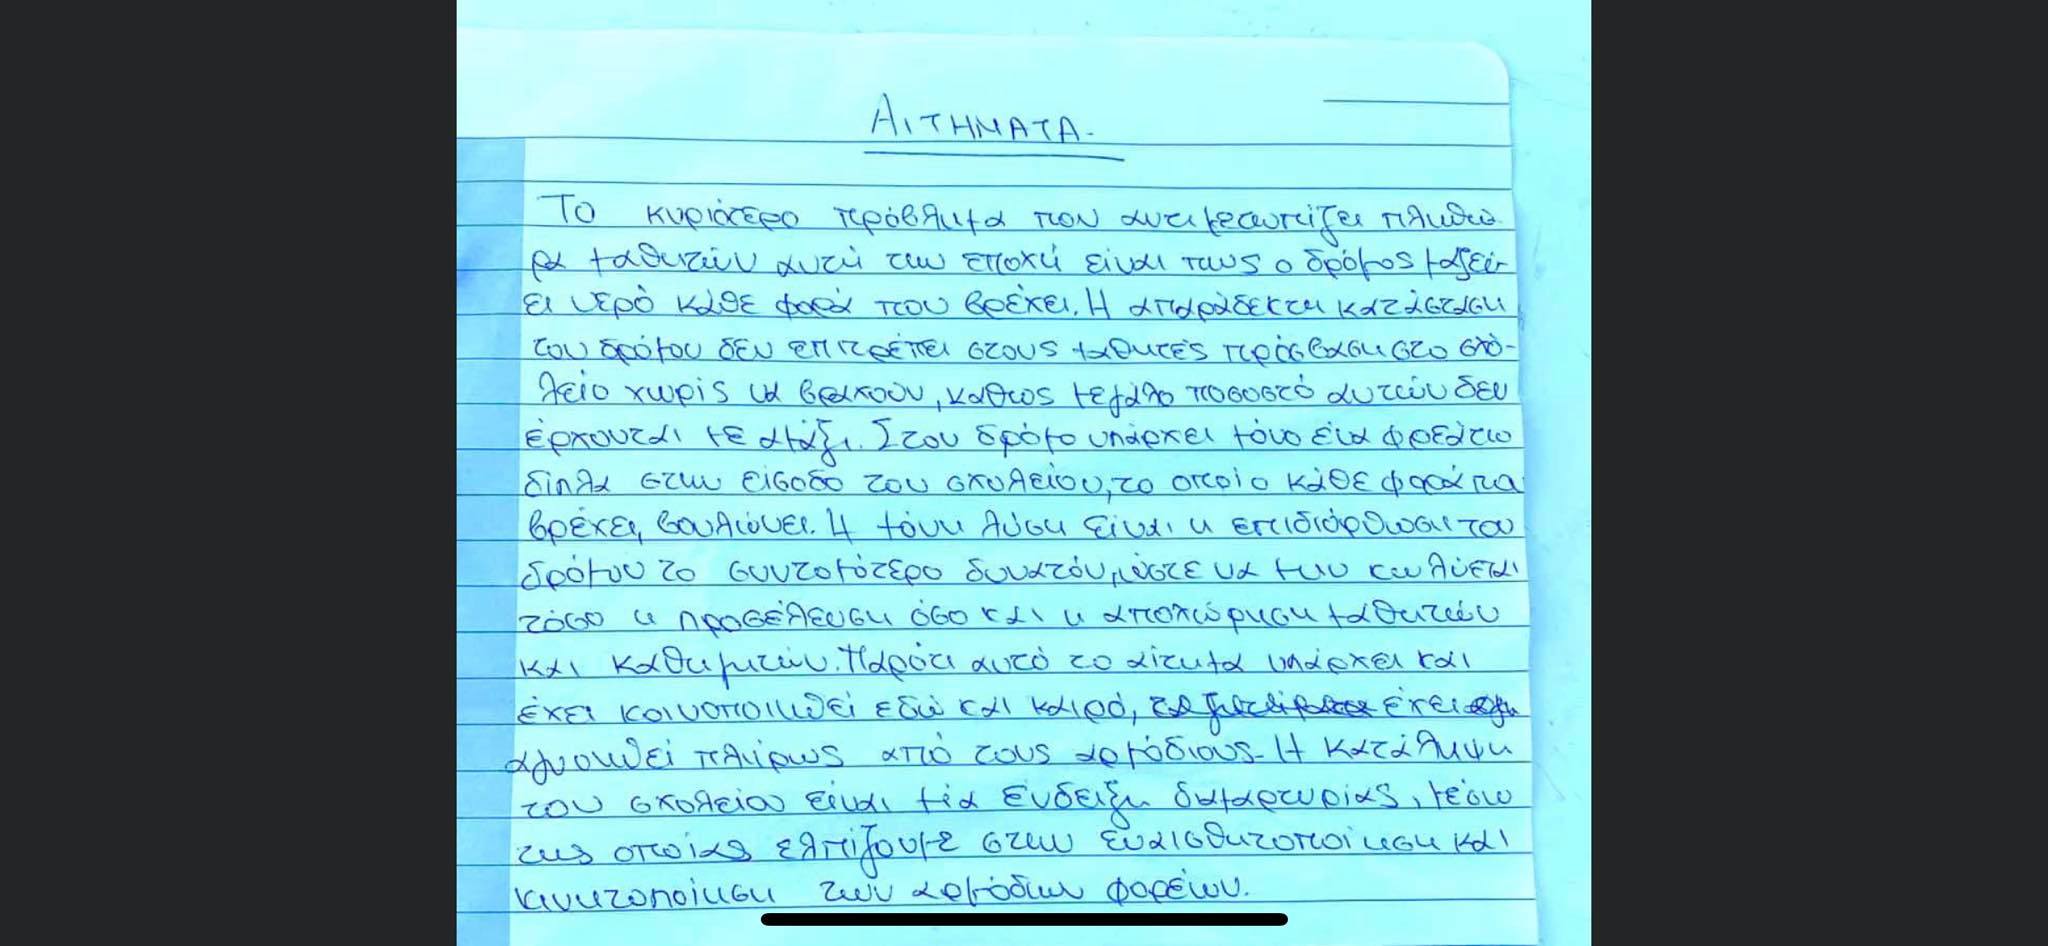 ΑΙΤΗΜΑΤΑ-
Το κυριότερο πρόβλημα που αντιμετωπίζει πληθώ-
ρα μαθητών αυτή την εποχή είναι πως ο δρόμος μαζεύ-
ει νερό κάθε φορά που βρέχει. Η απαράδεκτη κατάσταση
του δρόμου δεν επιτρέπει στους μαθητές πρόσβαση στο σχο-
λείο χωρίς να βραχούν, καθώς μεγάλο ποσοστό αυτών δεν
έρχονται με αμάξι. Στον δρόμο υπάρχει μόνο ένα φρεάτιο
δίπλα στην είσοδο του σχολείου, το οποίο κάθε φορά που
βρέχει, βουλιώνει. Η μόνη λύση είναι η επιδιόρθωση του
δρόμου το συντομότερο δυνατόν, ώστε να μην κωλύεται
τόσο η προσέλευση όσο και η αποχώρηση μαθητών
και καθηγητών. Παρότι αυτό το αίτημα υπάρχει και
έχει κοινοποιηθεί εδώ και καιρό, έχει
αγνοηθεί πλήρως από τους αρμόδιους. Η κατάληψη
του σχολείου είναι μία ένδειξη διαμαρτυρίας, μέσω
της οποίας ελπίζουμε στην ευαισθητοποίηση και
κινητοποίηση των αρμόδιων φορέων.